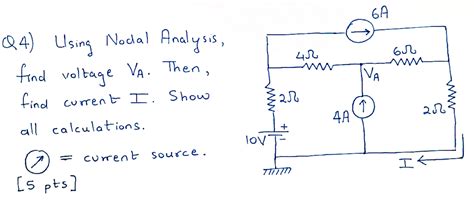 Q4) Using Nodal Analysis,
find voltage VA. Then,
find current I. Show
all calculations.
= current source.
[5 pts]
6A
4Ω
6Ω
VA
2Ω
4A
2Ω
10V
+
-
I